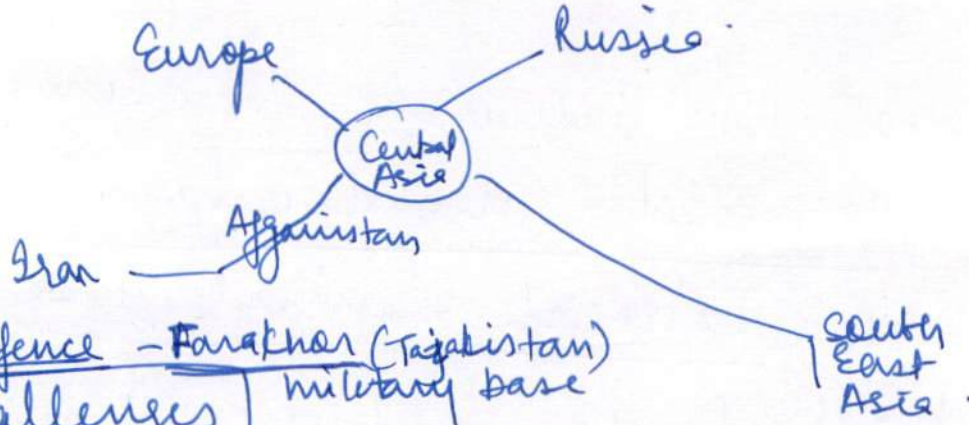 Europe
Russia
Central
Asia
Afganistan
Iran
South
East
Asia
fence - Farakhor (Tajakistan)
military base
allenges